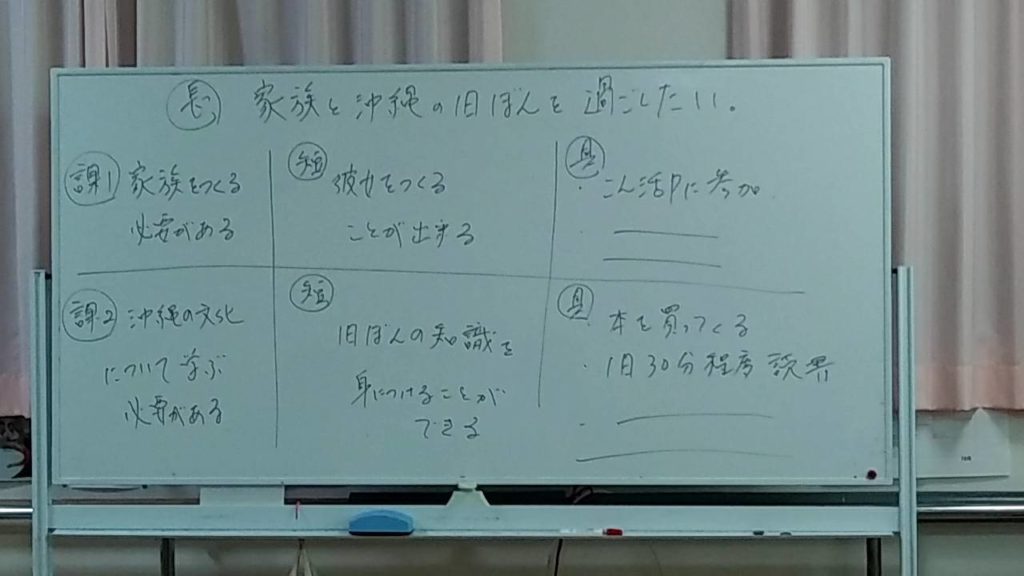 長 家族と沖縄の旧ぼんを過ごしたい。
課1 家族をつくる
必要がある
短 彼女をつくる
ことが出来る
具
・こん活Pに参加
課2 沖縄の文化
について学ぶ
必要がある
短
旧ぼんの知識を
身につけることが
できる
具
・本を買ってくる
・1日30分程度読